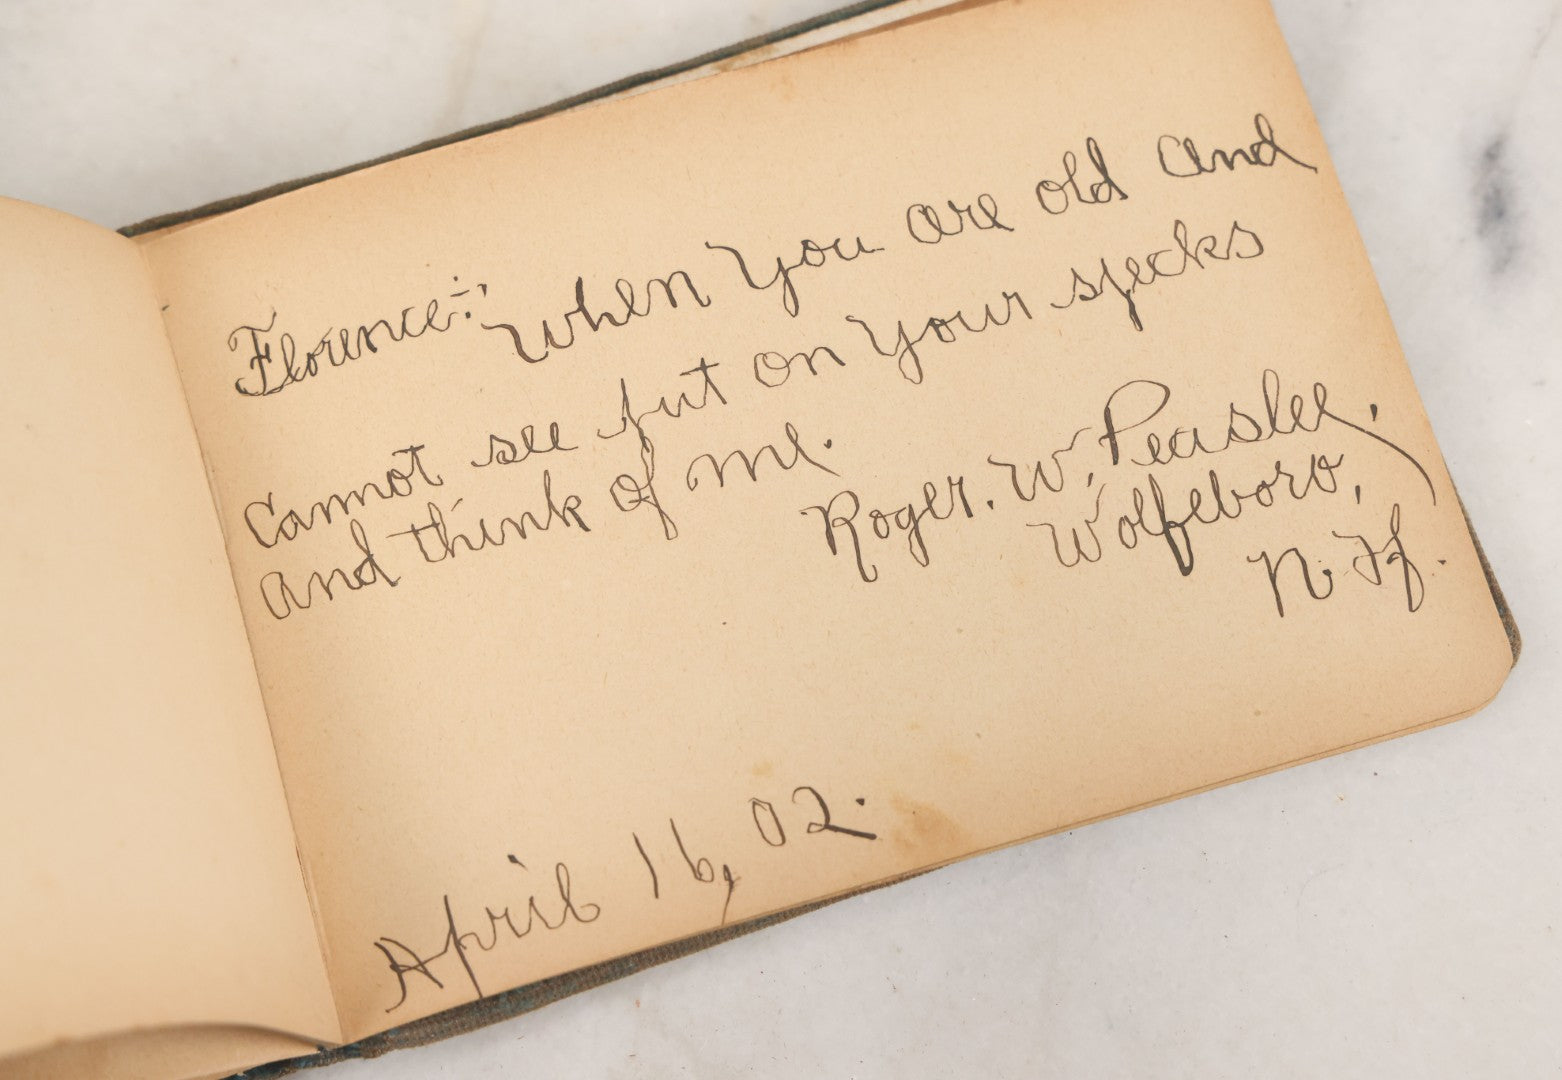 Florence:- When you are old and
cannot see put on your specks
and think of me.
Roger. W. Peaslee,
Wolfeboro,
N. H.
April 16, 02.